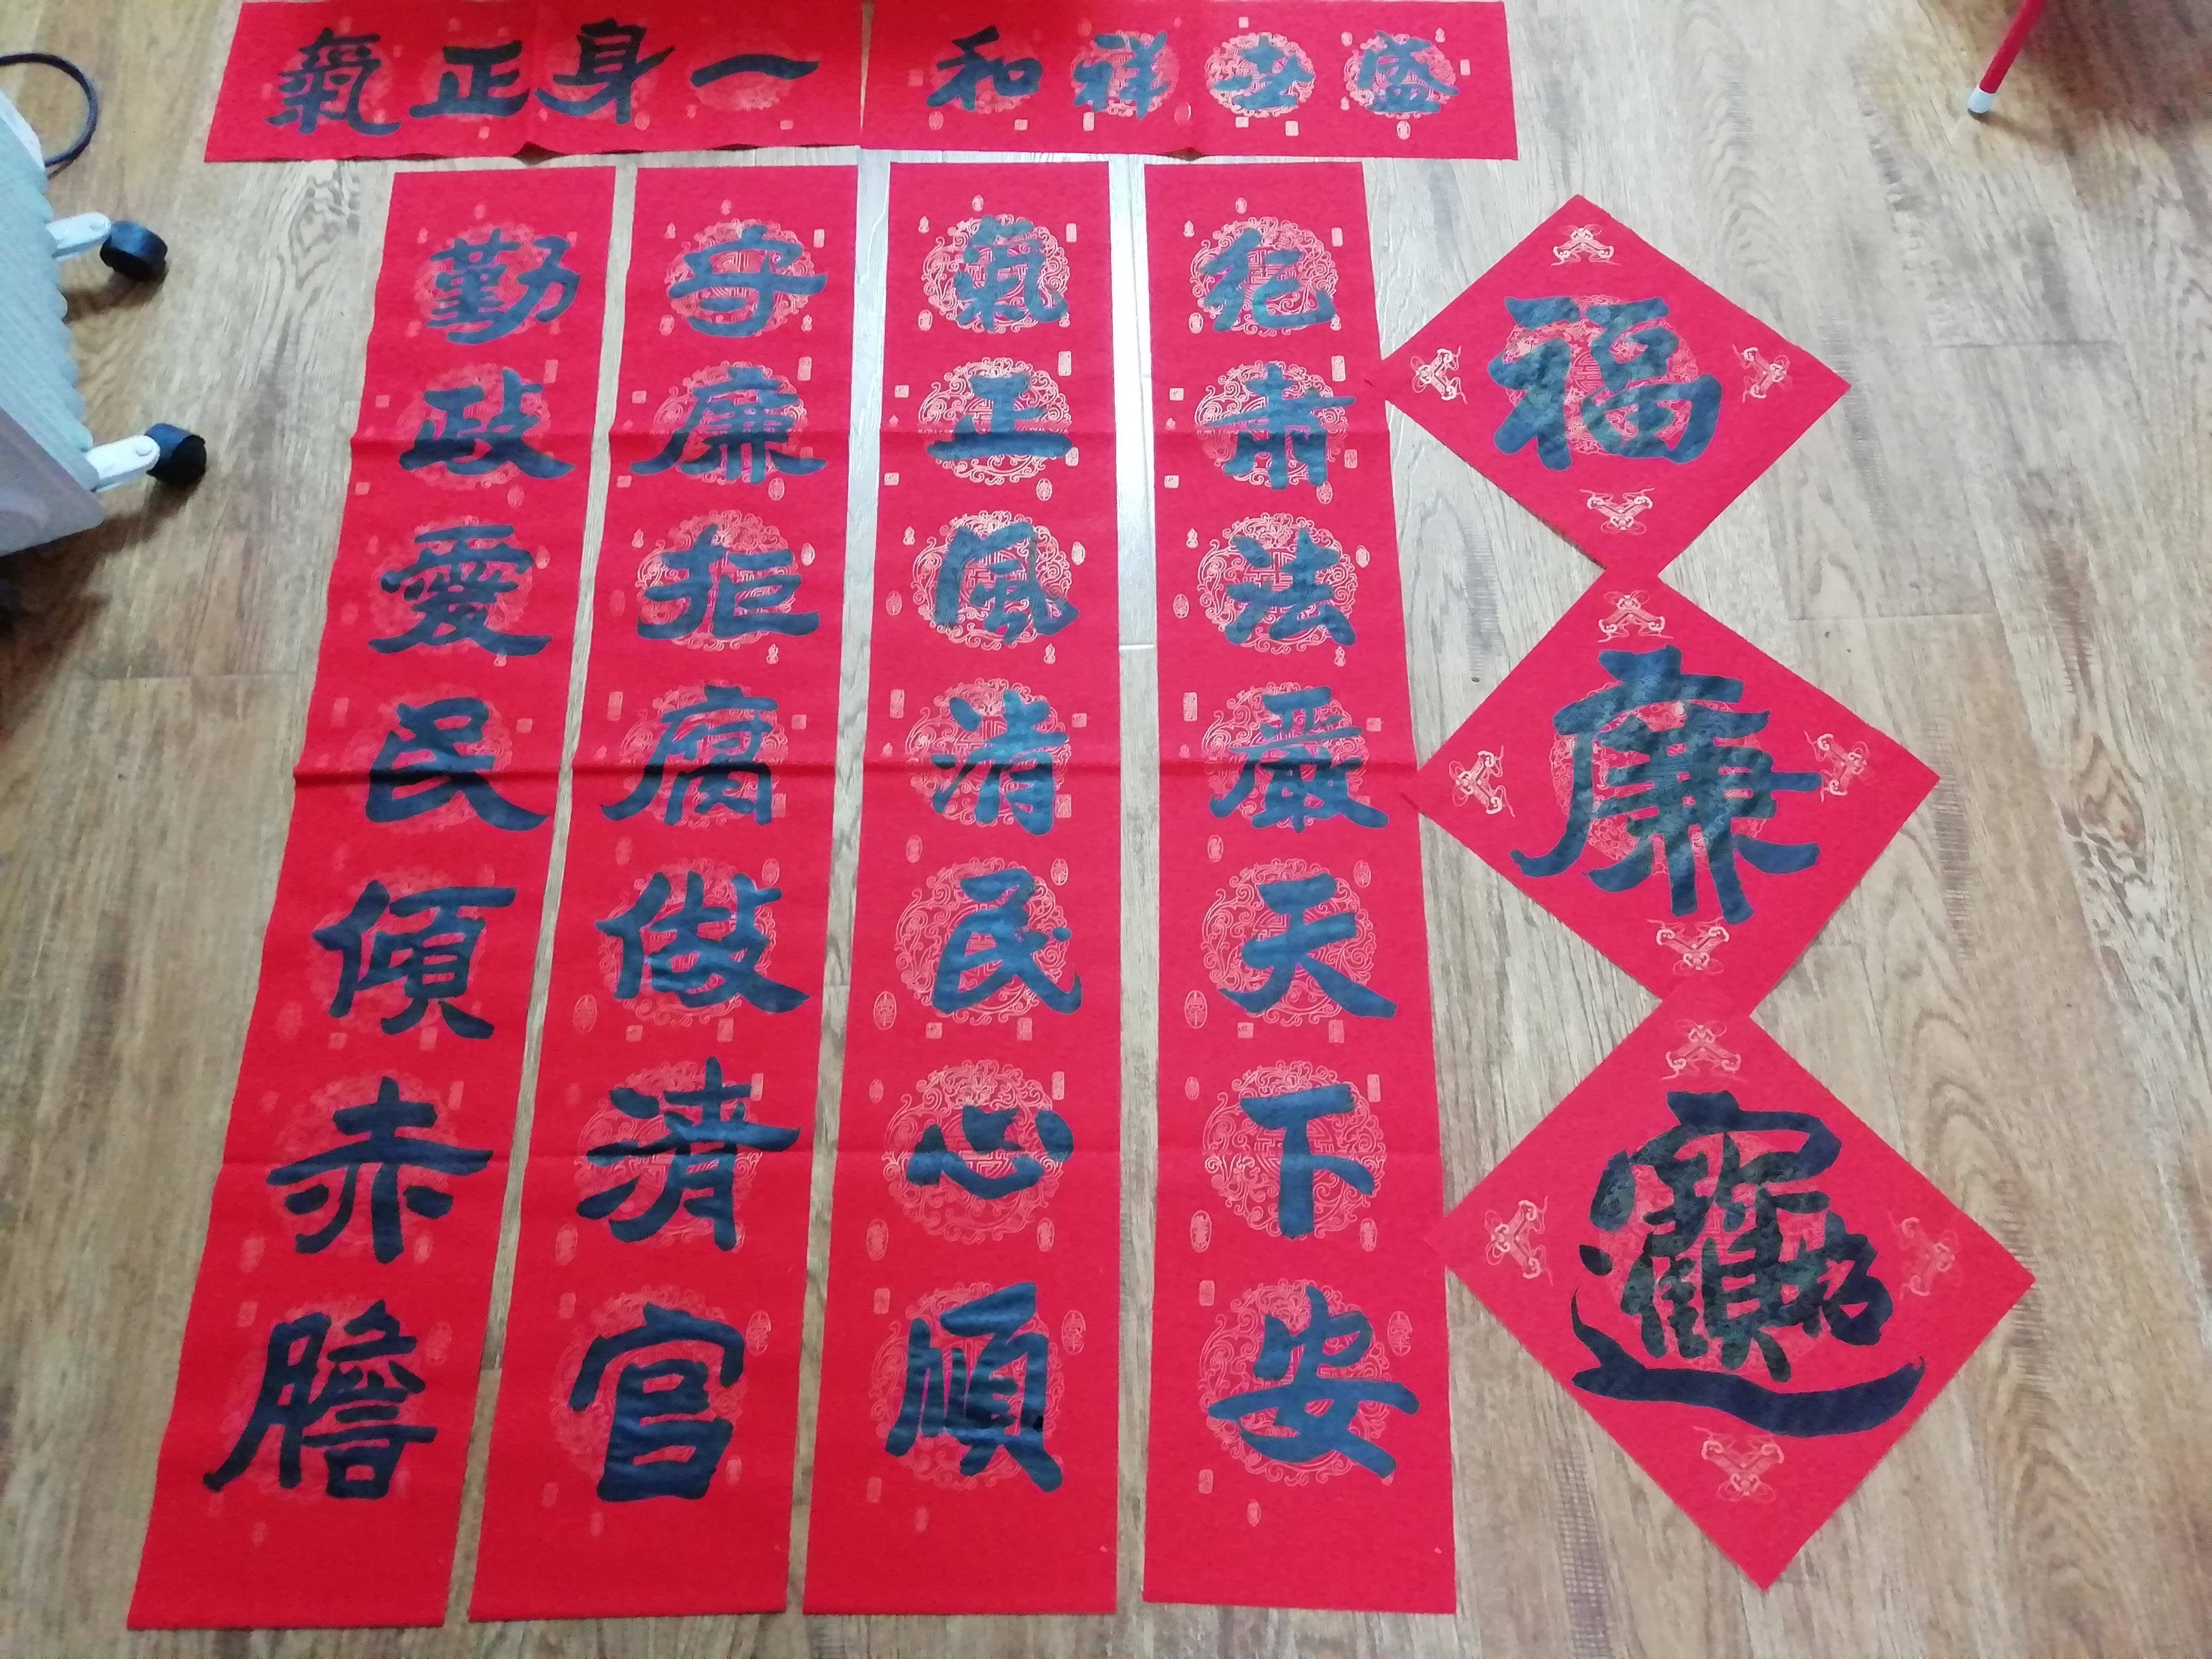 盛世祥和
一身正氣
勤政愛民傾赤膽
守廉拒腐做清官
氣正風清民心順
紀肅法嚴天下安
福
廉
招財進寶